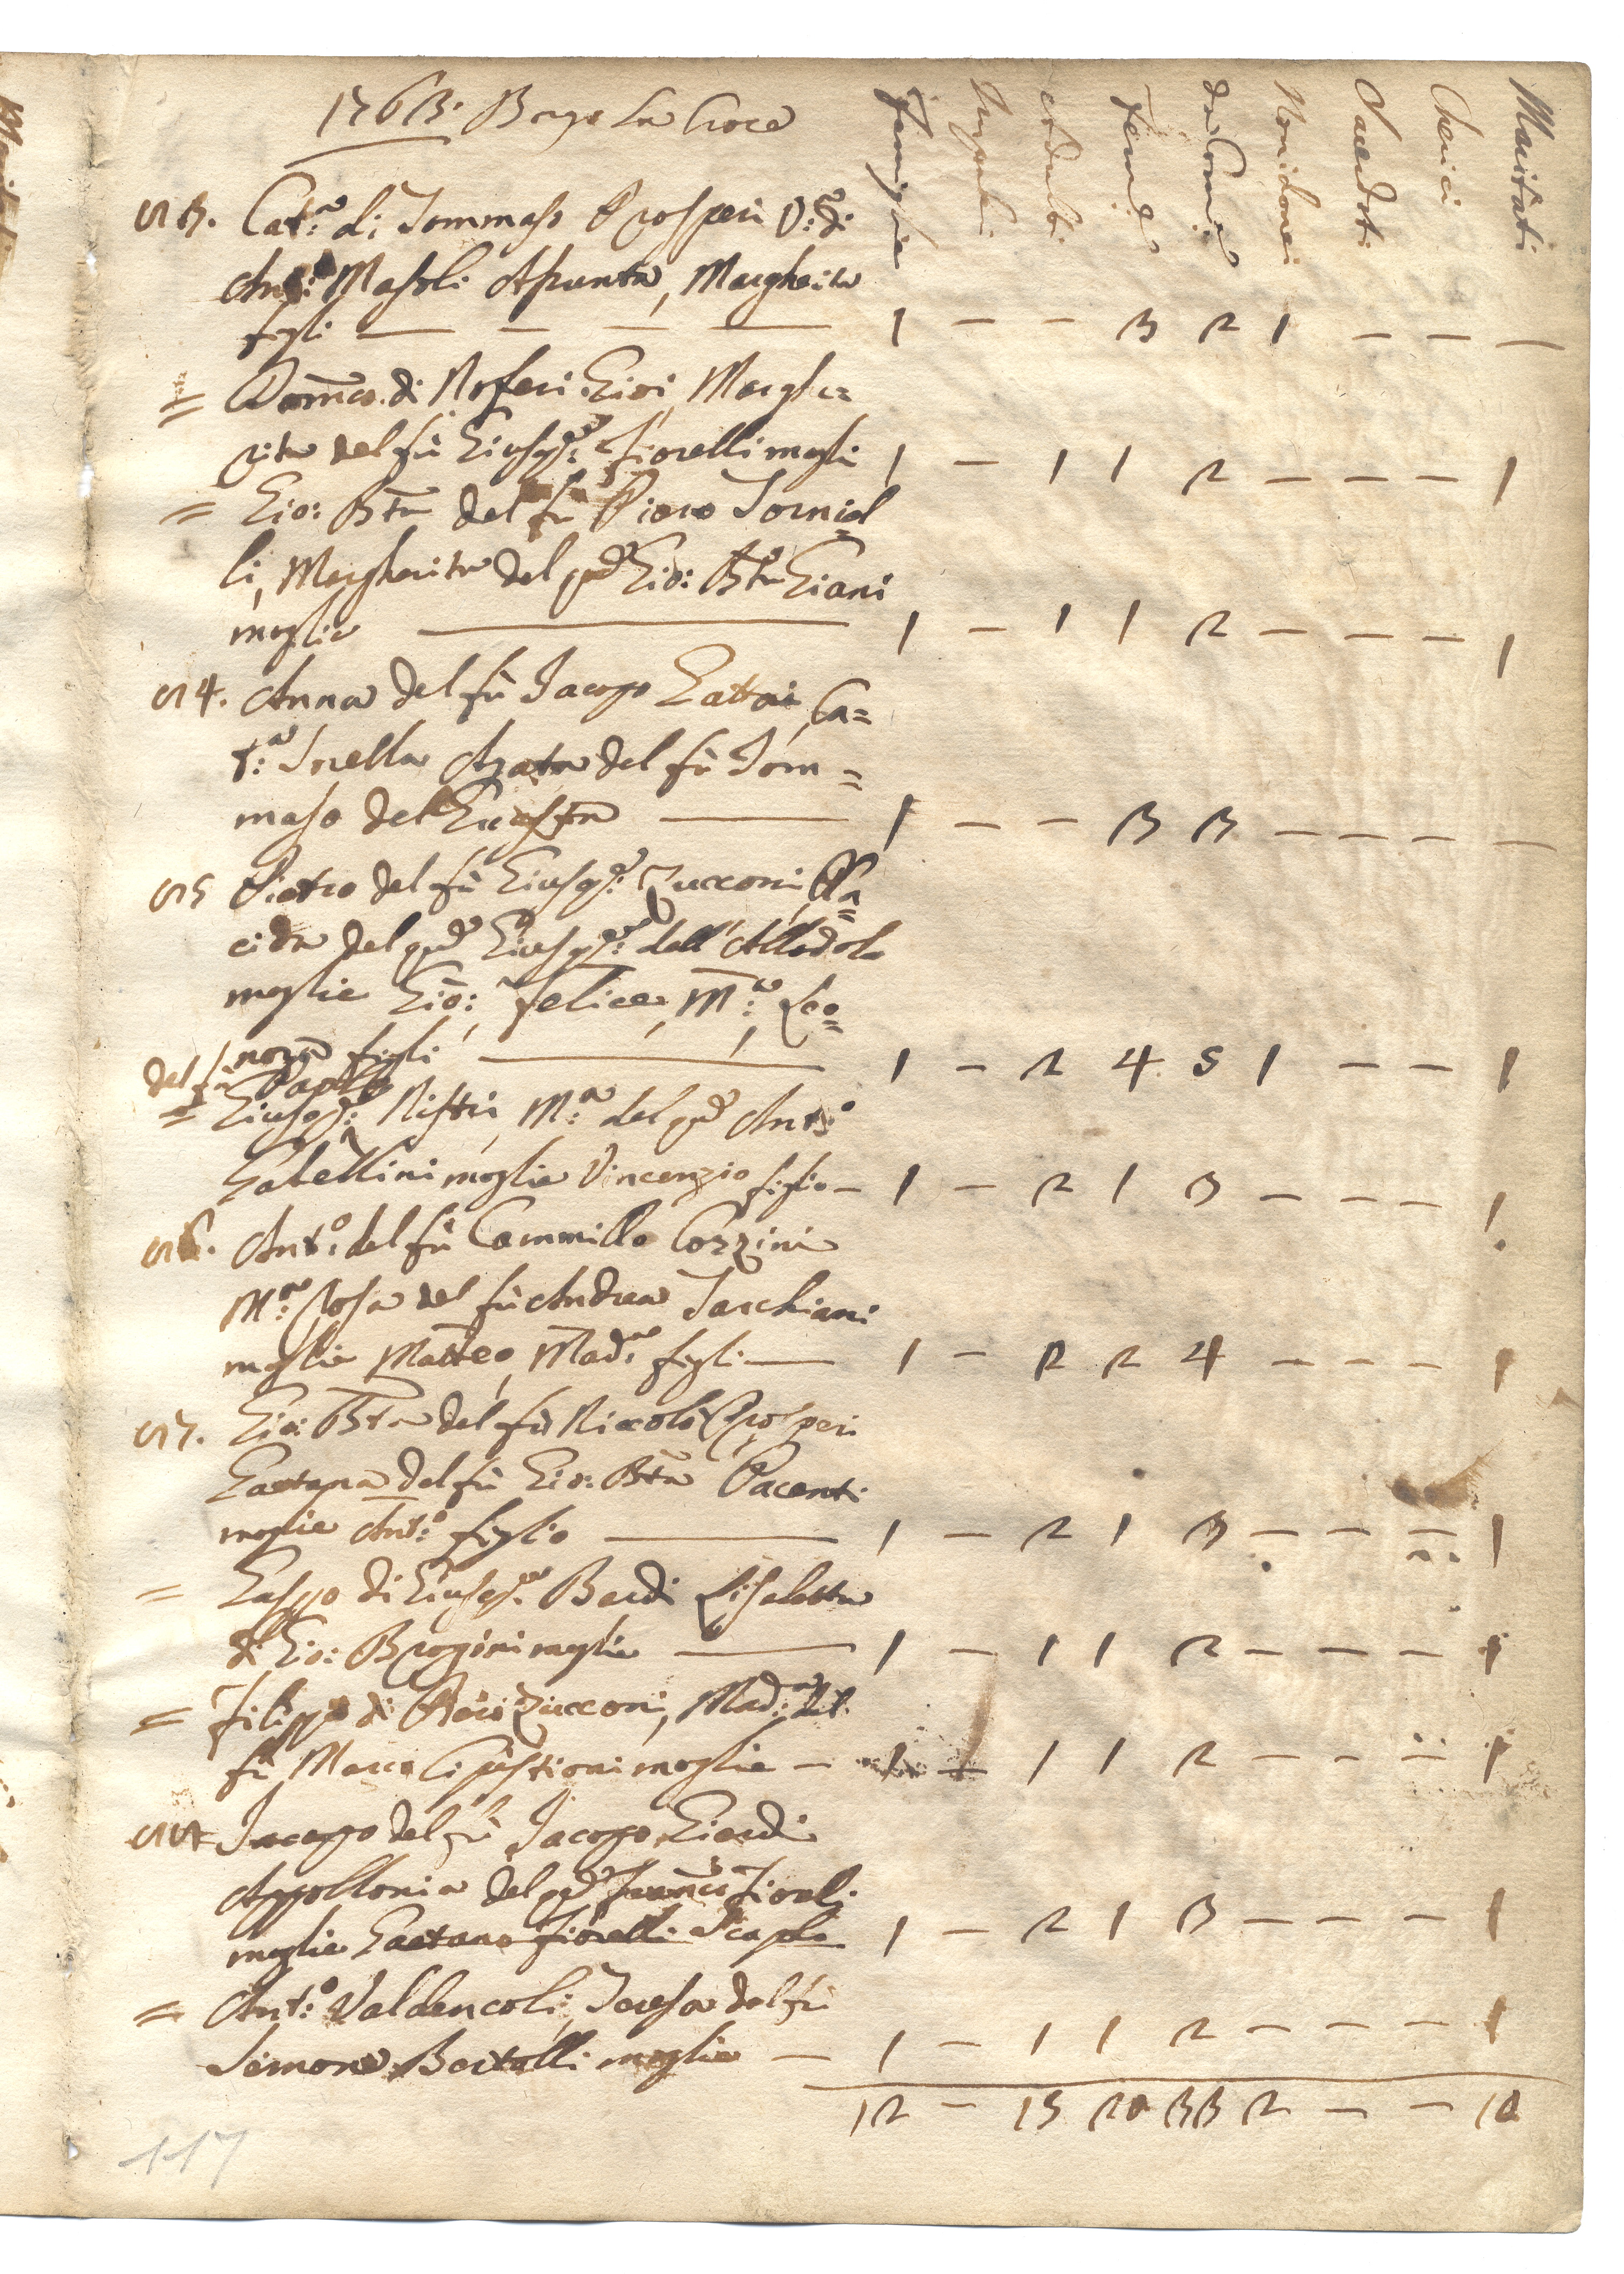 1763. Borgo La Croce
Famiglie Impuberi Adulti Femine da Com.e Non idonei Sacerdoti Cherici Maritati
513. Cat.a di Tommaso Prosperi V.a di
Ant.o Masoli Assunta, Margherita
figli — — — — 1 — — 3 2 1 — — —
= Dom.co di Noferi Giovi, Marghe=
rita del fù Gius.e Fiorelli mogli 1 — 1 1 2 — — — 1
= Gio: Bta del fù Piero Torniel
li, Margherita del qd Gio: Bta Giani
moglie — 1 — 1 1 2 — — — 1
514. Anna del fù Jacopo Gattai, Ca=
t.a Orella Agata del fù Tom=
maso del — 1 — — 3 3 — — — —
515 Pietro del fù Giusep.e Zucconi, Pla=
cida del qd Giusep.e dall' Allodola
moglie Gio: Felice, M.a Leo=
nora figli — 1 — 2 4 5 1 — — 1
del fù Paolo
= Giusep.e Ristri, M.a del qd Ant.o
Gabellini moglie Vincenzio figlio — 1 — 2 1 3 — — — 1
516. Ant.o del fù Cammillo Cozzini
M.a Rosa del fù Andrea Tarchiani
moglie Matteo, Mad.a figli — 1 — 2 2 4 — — — 1
517. Gio: Bta del fù Niccolò Prosperi
Gaetana del fù Gio: Bta Pacenti
moglie Ant.o figlio — 1 — 2 1 3 — — — 1
= Gaspo di Giusep.e Bardi Lisabetta
di Gio: Brogini moglie — 1 — 1 1 2 — — — 1
= Filippo di Zucconi, Mad.a del
fù Marco moglie — 1 — 1 1 2 — — — 1
Jacopo del fù Jacopo Giardi
Appollonia del qd Fran.co Fioreli
moglie Gaetano Fiorelli Scapolo 1 — 2 1 3 — — — 1
= Ant.o Valdencoli, Teresa del fù
Simone Bertolli moglie — 1 — 1 1 2 — — — 1
12 — 13 20 33 2 — — 10
117